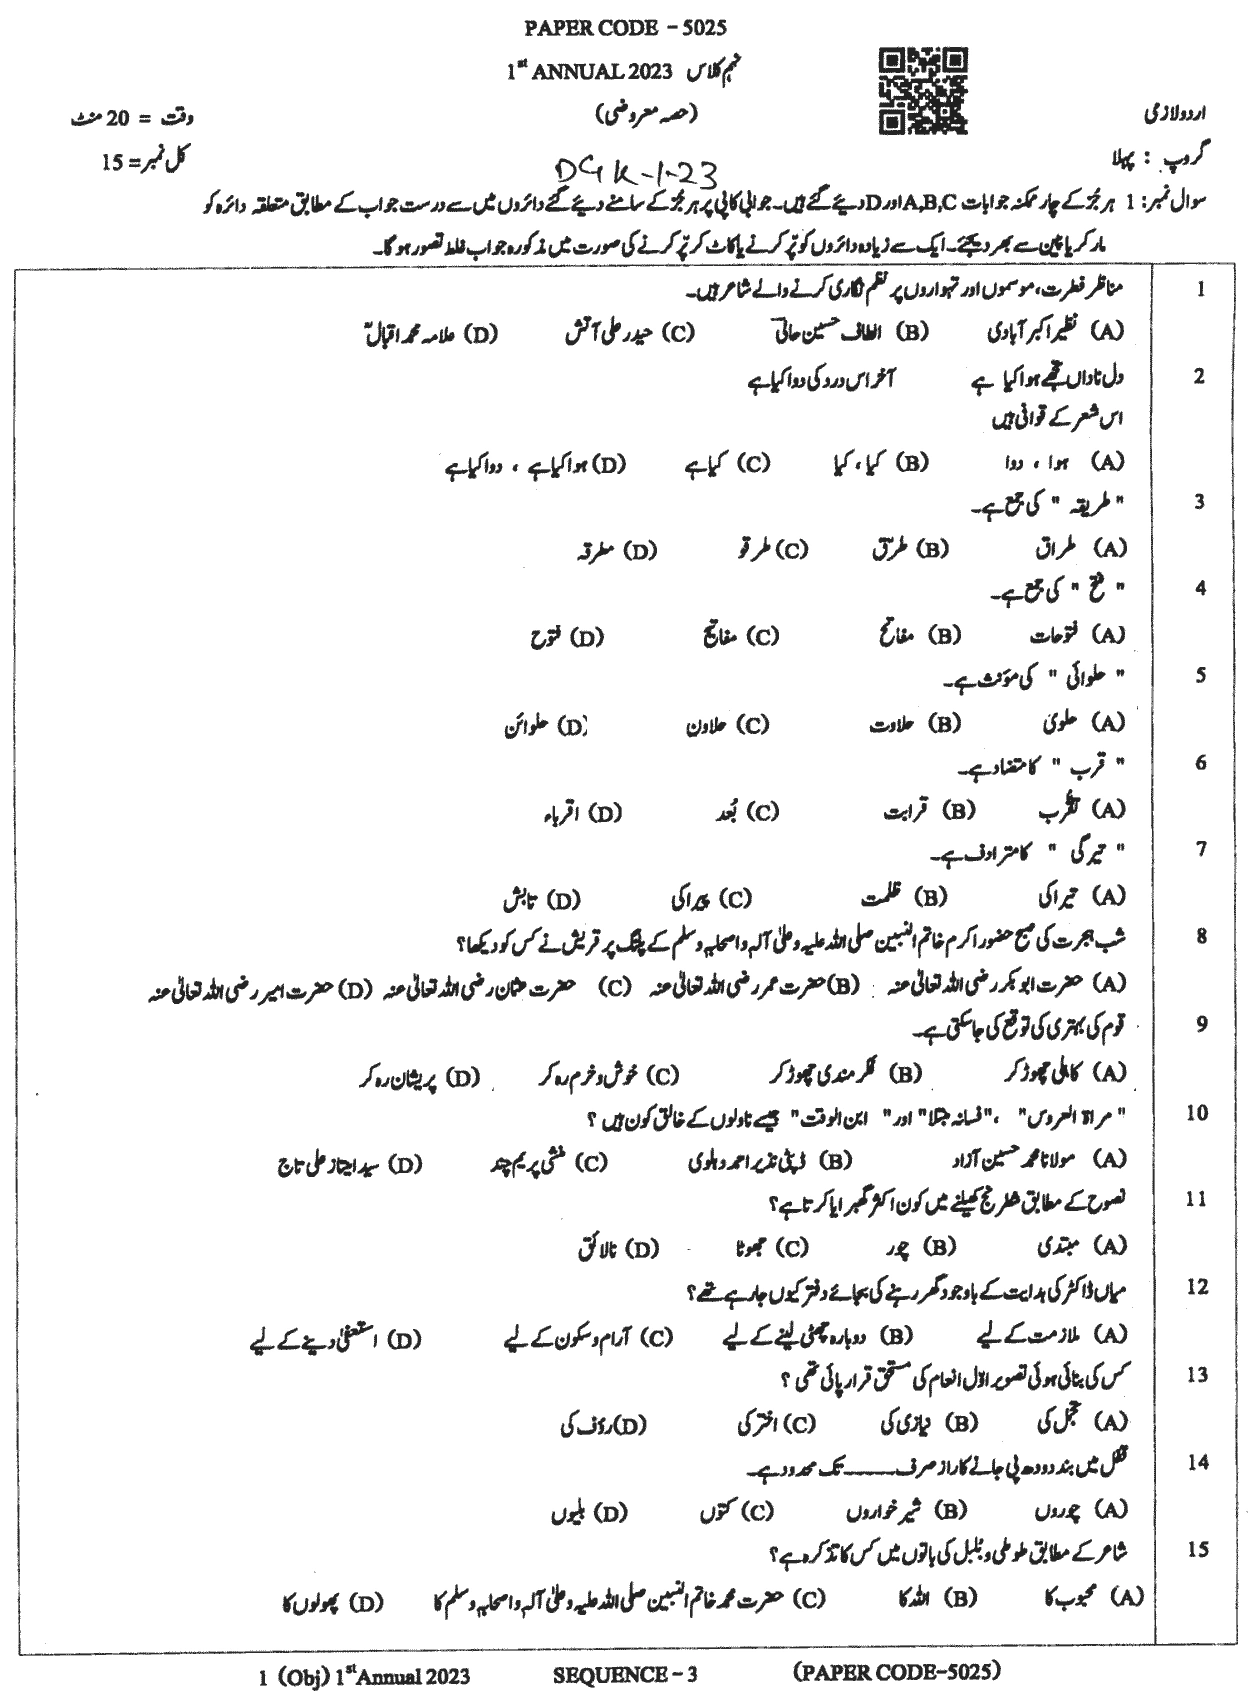 PAPER CODE - 5025
1st ANNUAL 2023 نہم کلاس
اردو لازمی (حصہ معروضی) وقت = 20 منٹ
گروپ : پہلا DGK-1-23 کل نمبر = 15
سوال نمبر: 1 ہر جُز کے چار ممکنہ جوابات A,B,C اور D دیئے گئے ہیں۔ جوابی کاپی پر ہر جُز کے سامنے دیئے گئے دائروں میں سے درست جواب کے مطابق متعلقہ دائرہ کو
مارکر یا پین سے بھر دیجئے۔ ایک سے زیادہ دائروں کو پُر کرنے یا کاٹ کر پُر کرنے کی صورت میں مذکورہ جواب غلط تصور ہو گا۔
1 مناظر فطرت، موسموں اور تہواروں پر نظم نگاری کرنے والے شاعر ہیں۔
(A) نظیر اکبر آبادی (B) الطاف حسین حالیؔ (C) حیدر علی آتش (D) علامہ محمد اقبالؒ
2 دل ناداں تجھے ہوا کیا ہے آخر اس درد کی دوا کیا ہے
اس شعر کے قوافی ہیں
(A) ہوا ، دوا (B) کیا ، کیا (C) کیا ہے (D) ہوا کیا ہے ، دوا کیا ہے
3 " طریقہ " کی جمع ہے۔
(A) طراق (B) طرق (C) طرقو (D) مطرقہ
4 " فتح " کی جمع ہے۔
(A) فتوحات (B) مفاتح (C) مفاتیح (D) فتوح
5 " حلوائی " کی مؤنث ہے۔
(A) حلوی (B) حلاوت (C) حلاون (D) حلوائن
6 " قرب " کا متضاد ہے۔
(A) تقرّب (B) قرابت (C) بُعد (D) اقرباء
7 " تیرگی " کا مترادف ہے۔
(A) تیراکی (B) ظلمت (C) پیراکی (D) تابش
8 شب ہجرت کی صبح حضور اکرم خاتم النبیین صلی اللہ علیہ وعلیٰ آلہ واصحابہ وسلم کے پلنگ پر قریش نے کس کو دیکھا؟
(A) حضرت ابوبکر رضی اللہ تعالیٰ عنہ (B) حضرت عمر رضی اللہ تعالیٰ عنہ (C) حضرت عثمان رضی اللہ تعالیٰ عنہ (D) حضرت امیر رضی اللہ تعالیٰ عنہ
9 قوم کی بہتری کی توقع کی جا سکتی ہے۔
(A) کاہلی چھوڑ کر (B) فکر مندی چھوڑ کر (C) خوش و خرم رہ کر (D) پریشان رہ کر
10 " مراۃ العروس" ، "فسانہ مبتلا" اور " ابن الوقت" جیسے ناولوں کے خالق کون ہیں ؟
(A) مولانا محمد حسین آزاد (B) ڈپٹی نذیر احمد دہلوی (C) منشی پریم چند (D) سید امتیاز علی تاج
11 نصوح کے مطابق شطرنج کھیلنے میں کون اکثر گھبرایا کرتا ہے؟
(A) مبتدی (B) چور (C) جھوٹا (D) نالائق
12 میاں ڈاکٹر کی ہدایت کے باوجود گھر رہنے کی بجائے دفتر کیوں جا رہے تھے؟
(A) ملازمت کے لیے (B) دوبارہ چھٹی لینے کے لیے (C) آرام و سکون کے لیے (D) استعفیٰ دینے کے لیے
13 کس کی بنائی ہوئی تصویر اوّل انعام کی مستحق قرار پائی تھی ؟
(A) تجمل کی (B) نیازی کی (C) اختر کی (D) رؤف کی
14 قفل میں بند دودھ پی جانے کا راز صرف ______ تک محدود ہے۔
(A) چوروں (B) شیر خواروں (C) کتوں (D) بلیوں
15 شاعر کے مطابق طوطی و بلبل کی باتوں میں کس کا تذکرہ ہے؟
(A) محبوب کا (B) اللہ کا (C) حضرت محمد خاتم النبیین صلی اللہ علیہ وعلیٰ آلہ واصحابہ وسلم کا (D) پھولوں کا
1 (Obj) 1st Annual 2023 SEQUENCE - 3 (PAPER CODE-5025)